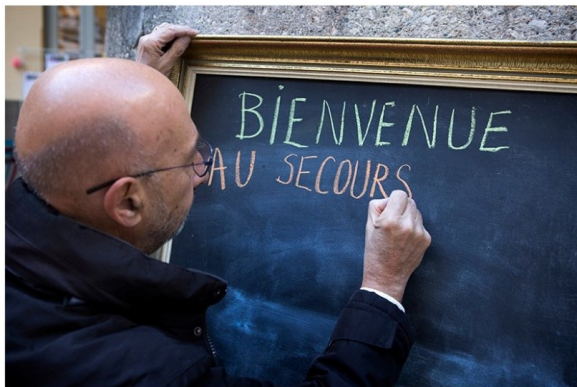 BIENVENUE
AU SECOURS